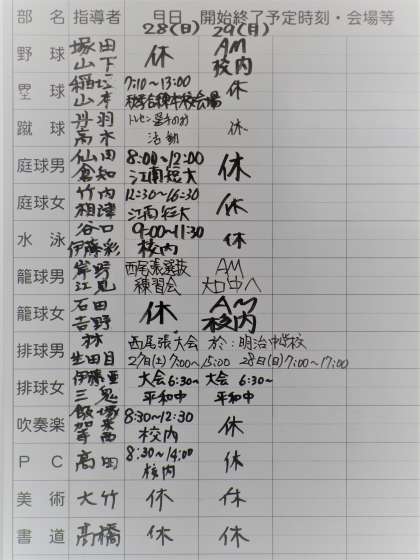 部 名 指導者 月日 開始終了予定時刻・会場等
28(日) 29(月)
野 球 塚田 山下 休 AM 校内
塁 球 稲垣 山本 7:10～13:00 本校会場 休
蹴 球 丹羽 高木 トレセン選手のみ 活動 休
庭球男 仙田 倉知 8:00～12:00 江南短大 休
庭球女 竹内 相津 12:30～16:30 江南短大 休
水 泳 谷口 伊藤彩 9:00～11:30 校内 休
籠球男 岸野 江見 西尾張選抜 練習会 AM 大口中へ
籠球女 石田 吉野 休 AM 校内
排球男 林 生田目 西尾張大会 於:明治中学校 27日(土)7:00～15:00 28日(日)7:00～17:00
排球女 伊藤亜 三鬼 大会6:30～ 平和中 大会 6:30～ 平和中
吹奏楽 飯塚 加来 寺西 8:30～12:30 校内 休
P C 高田 8:30～14:00 校内 休
美 術 大竹 休 休
書 道 高橋 休 休